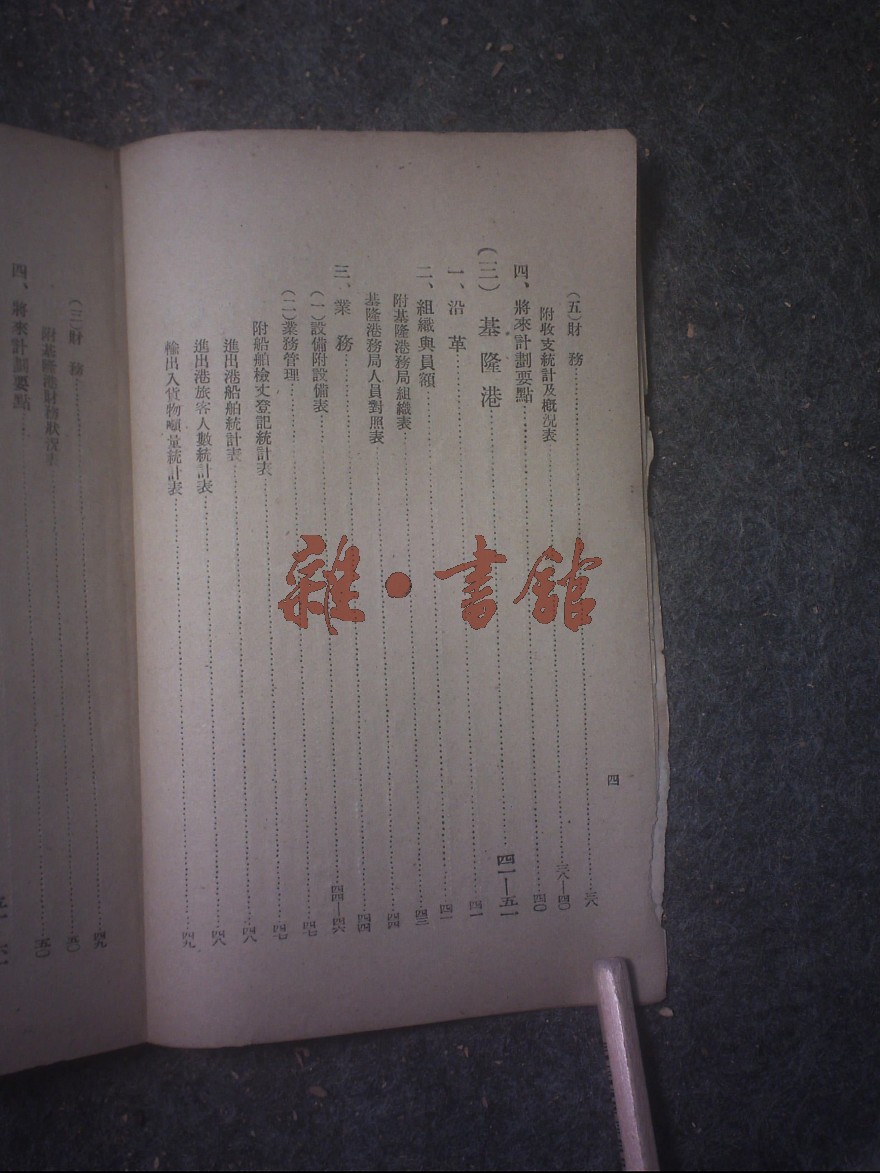 四
(五)財務……三八
附收支統計及概況表……三八—四〇
四、將來計劃要點……四〇
(三)基隆港……四一—五一
一、沿革……四一
二、組織與員額……四二
附基隆港務局組織表……四三
基隆港務局人員對照表……四四
三、業務……四四
(一)設備附設備表……四四—四六
(二)業務管理……四七
附船舶檢丈登記統計表……四七
進出港船舶統計表……四八
進出港旅客人數統計表……四八
輸出入貨物噸量統計表……四九
(三)財務……四九
附基隆港財務狀況表……五〇
四、將來計劃要點……五〇
雜·書館